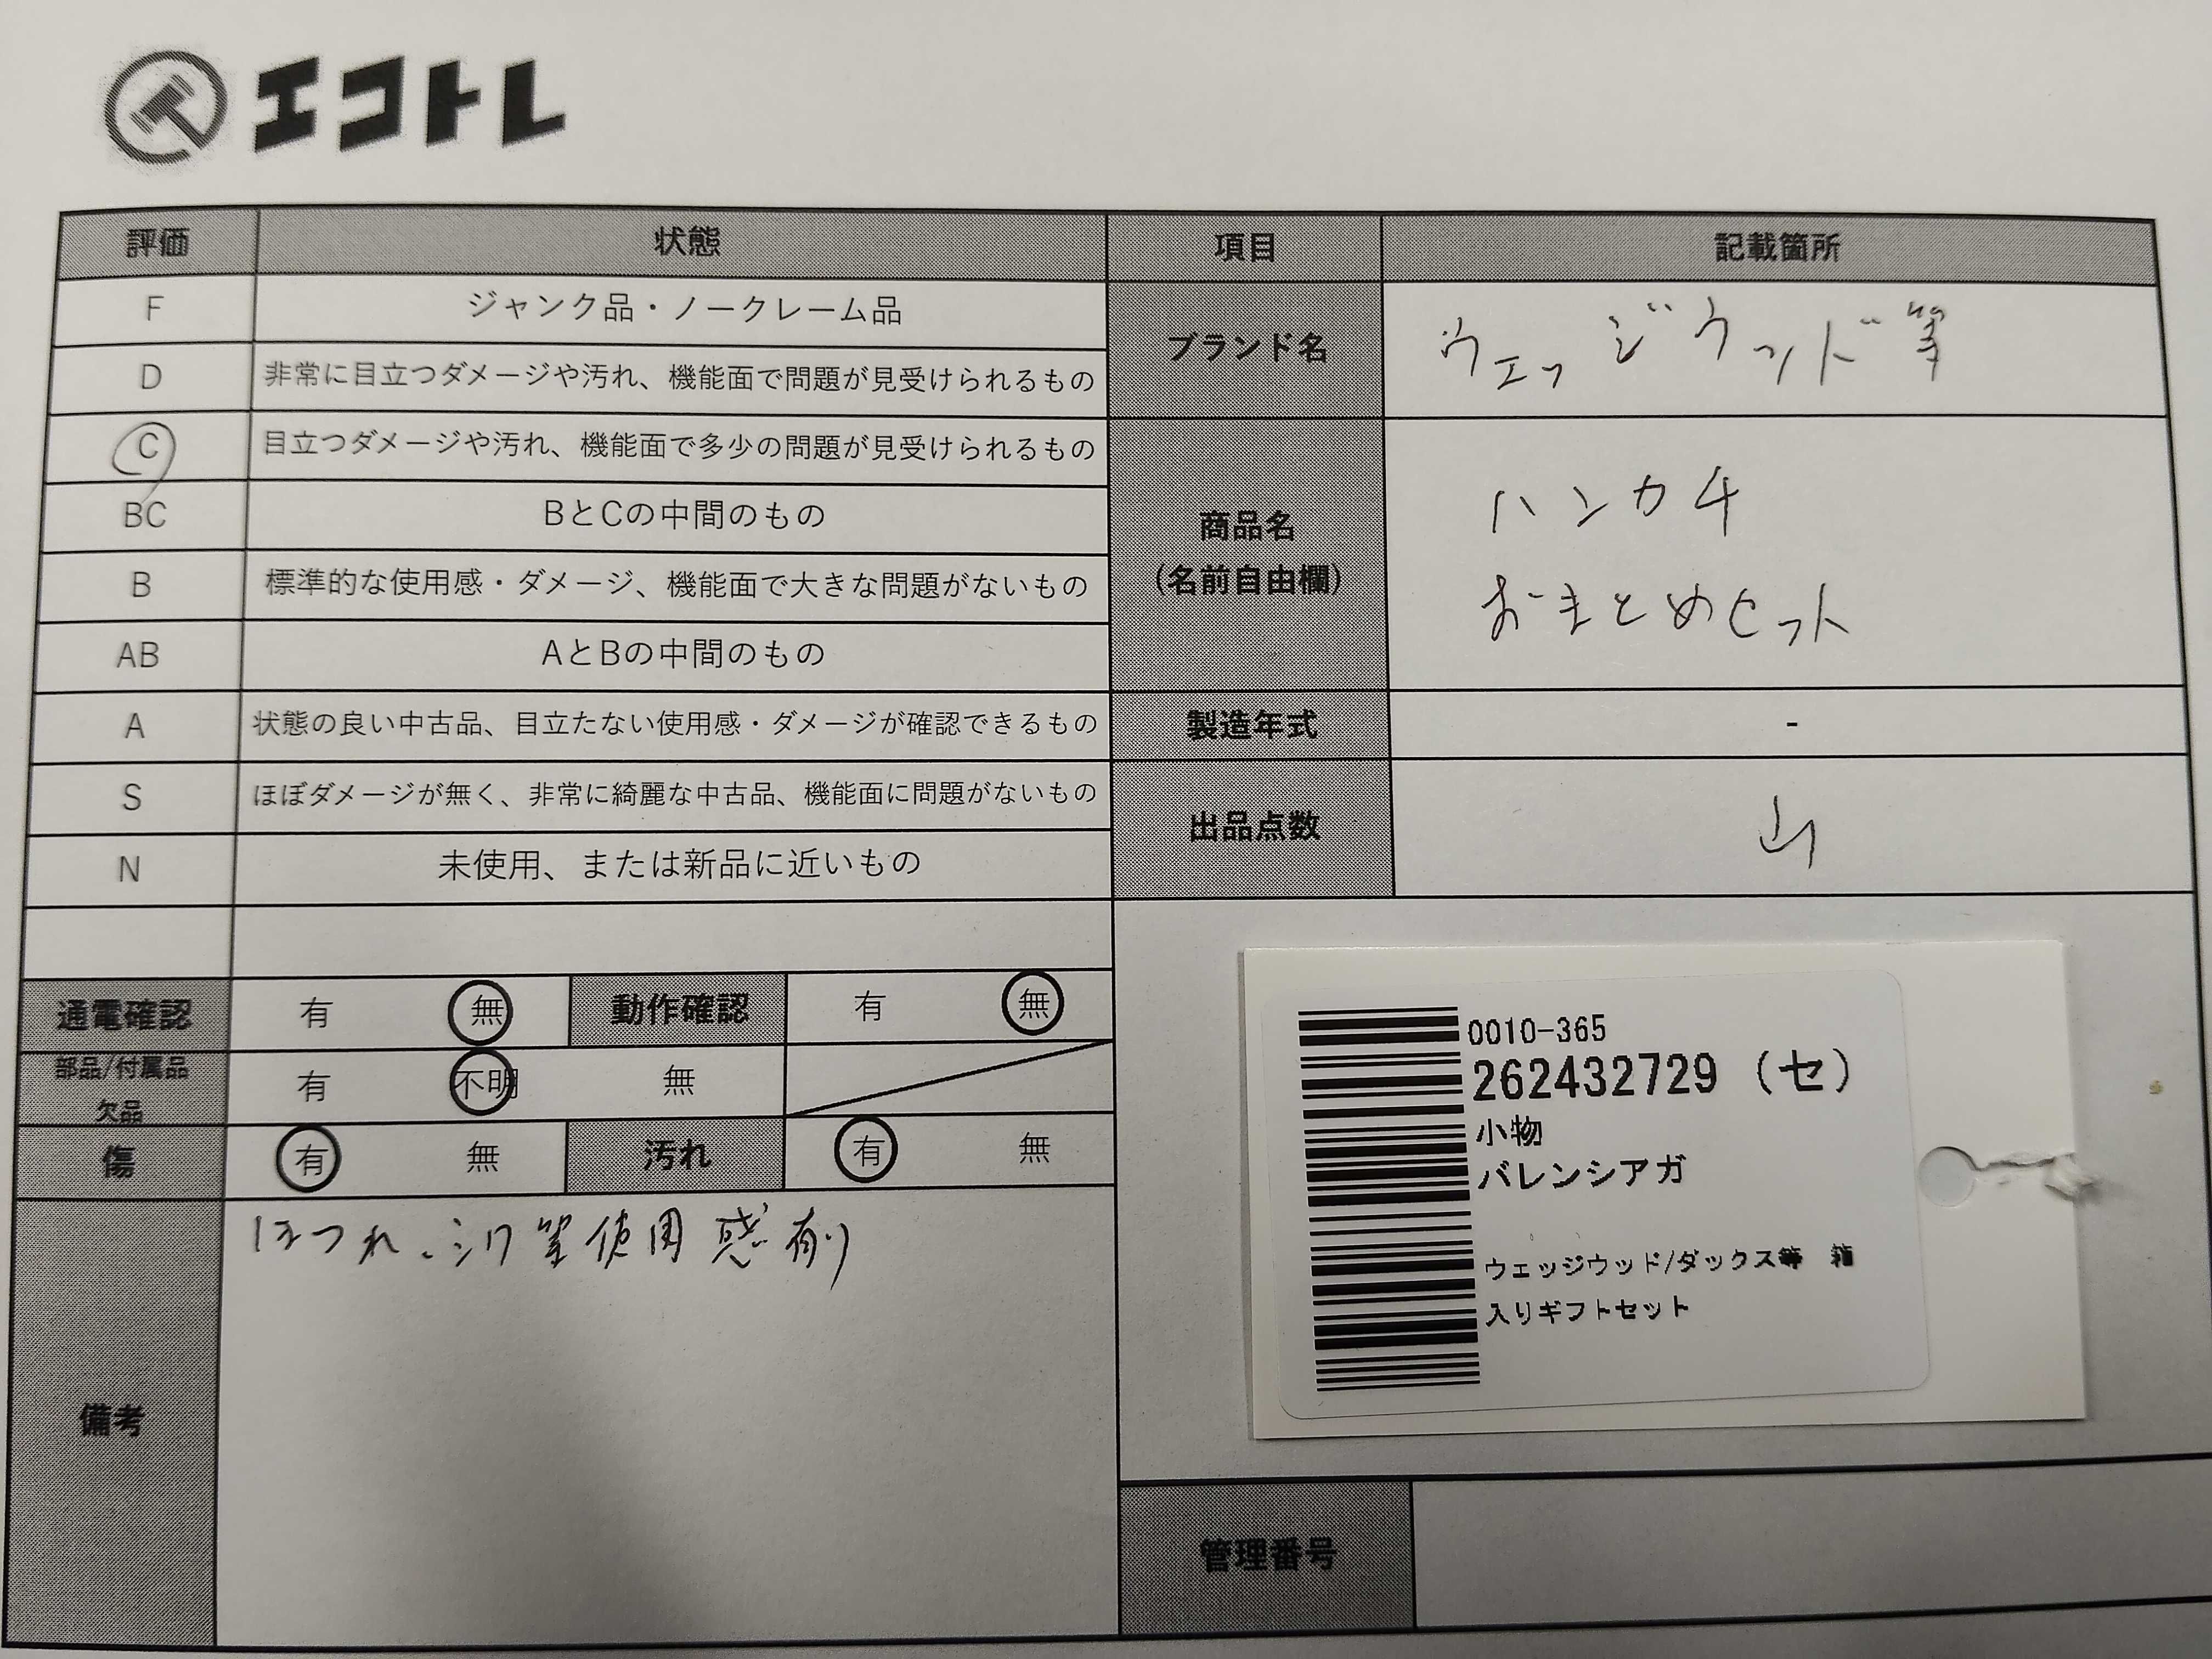 エコトレ
評価 状態 項目 記載箇所
F ジャンク品・ノークレーム品
D 非常に目立つダメージや汚れ、機能面で問題が見受けられるもの
ブランド名 ウェッジウッド等
C 目立つダメージや汚れ、機能面で多少の問題が見受けられるもの
BC BとCの中間のもの
B 標準的な使用感・ダメージ、機能面で大きな問題がないもの
AB AとBの中間のもの
商品名
(名前自由欄)
ハンカチ
おまとめセット
A 状態の良い中古品、目立たない使用感・ダメージが確認できるもの
製造年式 -
S ほぼダメージが無く、非常に綺麗な中古品、機能面に問題がないもの
N 未使用、または新品に近いもの
出品点数 山
通電確認 有 無 動作確認 有 無
部品/付属品
欠品
有 不明 無
傷 有 無 汚れ 有 無
備考
ほつれ、シワ等使用感有り
0010-365
262432729 (セ)
小物
バレンシアガ
ウェッジウッド/ダックス等 箱
入りギフトセット
管理番号